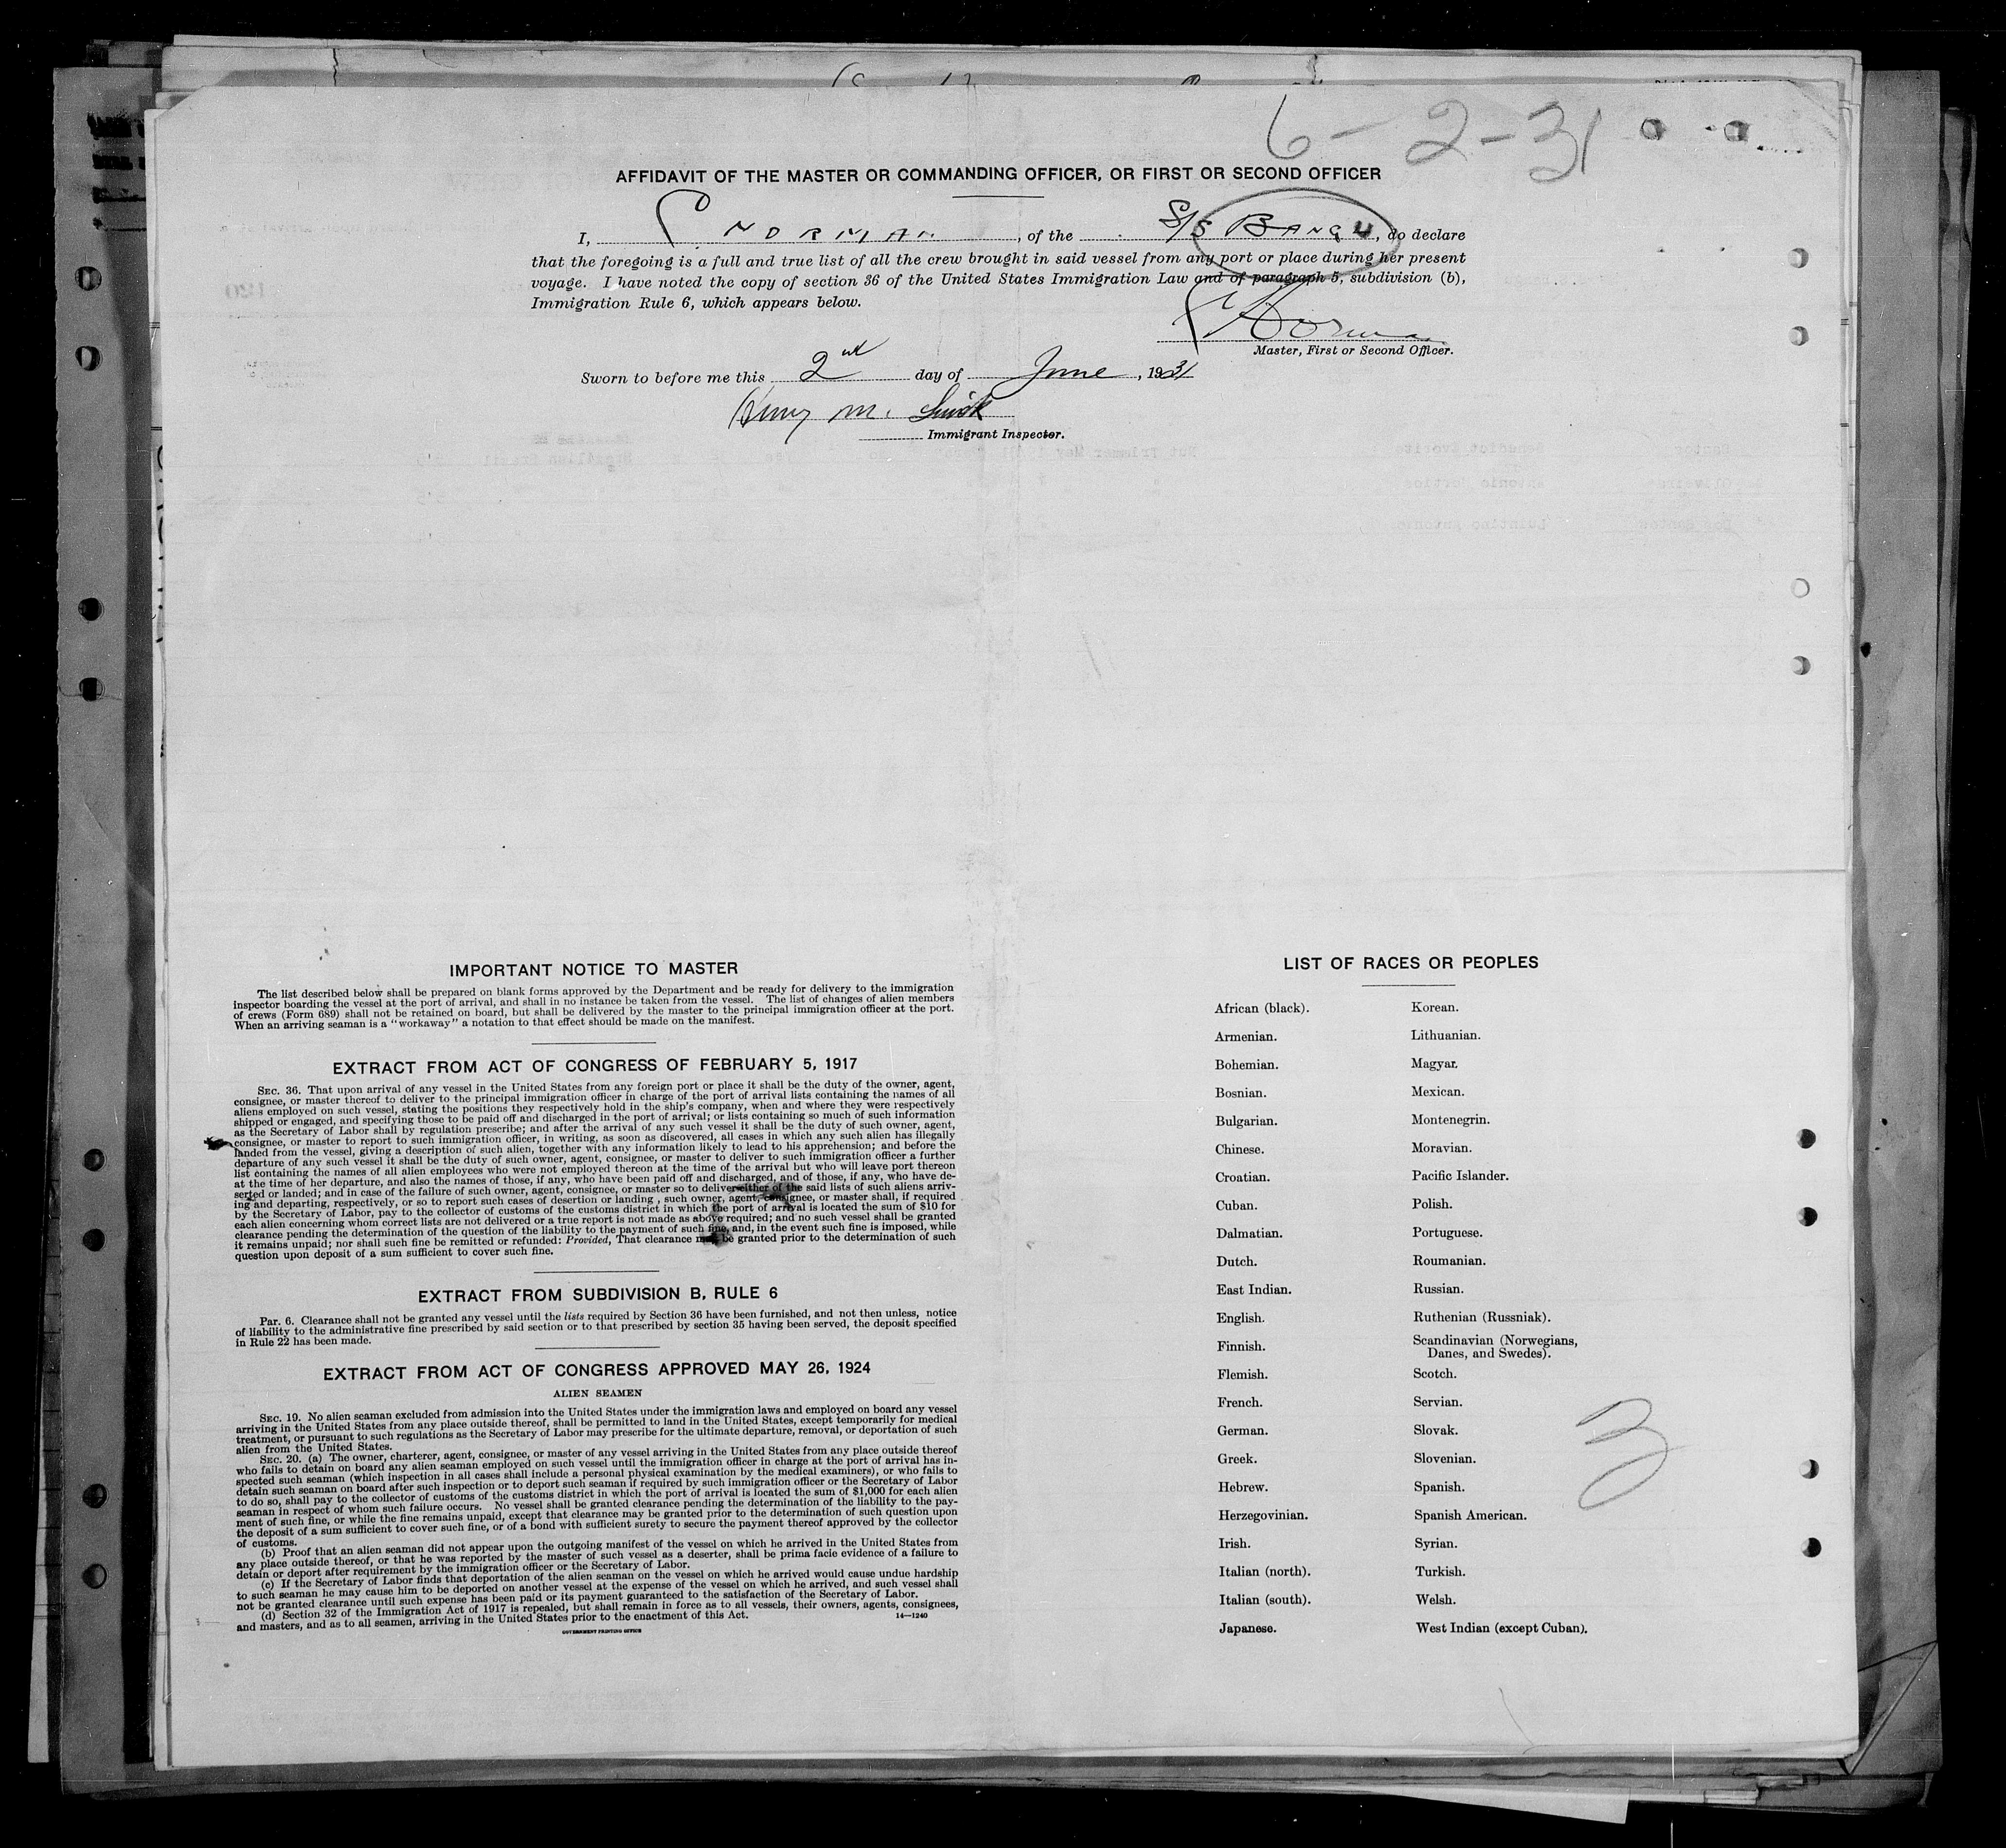 6-2-31
AFFIDAVIT OF THE MASTER OR COMMANDING OFFICER, OR FIRST OR SECOND OFFICER
I, NORMAN, of the S/S BANGU, do declare
that the foregoing is a full and true list of all the crew brought in said vessel from any port or place during her present
voyage. I have noted the copy of section 36 of the United States Immigration Law and of paragraph 5, subdivision (b),
Immigration Rule 6, which appears below.
Norman
Master, First or Second Officer.
Sworn to before me this 2nd day of June, 1931
Immigrant Inspector.
IMPORTANT NOTICE TO MASTER
The list described below shall be prepared on blank forms approved by the Department and be ready for delivery to the immigration
inspector boarding the vessel at the port of arrival, and shall in no instance be taken from the vessel. The list of changes of alien members
of crews (Form 689) shall not be retained on board, but shall be delivered by the master to the principal immigration officer at the port.
When an arriving seaman is a "workaway" a notation to that effect should be made on the manifest.
EXTRACT FROM ACT OF CONGRESS OF FEBRUARY 5, 1917
SEC. 36. That upon arrival of any vessel in the United States from any foreign port or place it shall be the duty of the owner, agent,
consignee, or master thereof to deliver to the principal immigration officer in charge of the port of arrival lists containing the names of all
aliens employed on such vessel, stating the positions they respectively hold in the ship's company, when and where they were respectively
shipped or engaged, and specifying those to be paid off and discharged in the port of arrival; or lists containing so much of such information
as the Secretary of Labor shall by regulation prescribe; and after the arrival of any such vessel it shall be the duty of such owner, agent,
consignee, or master to report to such immigration officer, in writing, as soon as discovered, all cases in which any such alien has illegally
landed from the vessel, giving a description of such alien, together with any information likely to lead to his apprehension; and before the
departure of any such vessel it shall be the duty of such owner, agent, consignee, or master to deliver to such immigration officer a further
list containing the names of all alien employees who were not employed thereon at the time of the arrival but who will leave port thereon
at the time of her departure, and also the names of those, if any, who have been paid off and discharged, and of those, if any, who have de-
serted or landed; and in case of the failure of such owner, agent, consignee, or master so to deliver either of the said lists of such aliens arriv-
ing and departing, respectively, or so to report such cases of desertion or landing , such owner, agent, consignee, or master shall, if required
by the Secretary of Labor, pay to the collector of customs of the customs district in which the port of arrival is located the sum of $10 for
each alien concerning whom correct lists are not delivered or a true report is not made as above required; and no such vessel shall be granted
clearance pending the determination of the question of the liability to the payment of such fine, and, in the event such fine is imposed, while
it remains unpaid; nor shall such fine be remitted or refunded: Provided, That clearance may be granted prior to the determination of such
question upon deposit of a sum sufficient to cover such fine.
EXTRACT FROM SUBDIVISION B, RULE 6
Par. 6. Clearance shall not be granted any vessel until the lists required by Section 36 have been furnished, and not then unless, notice
of liability to the administrative fine prescribed by said section or to that prescribed by section 35 having been served, the deposit specified
in Rule 22 has been made.
EXTRACT FROM ACT OF CONGRESS APPROVED MAY 26, 1924
ALIEN SEAMEN
SEC. 19. No alien seaman excluded from admission into the United States under the immigration laws and employed on board any vessel
arriving in the United States from any place outside thereof, shall be permitted to land in the United States, except temporarily for medical
treatment, or pursuant to such regulations as the Secretary of Labor may prescribe for the ultimate departure, removal, or deportation of such
alien from the United States.
SEC. 20. (a) The owner, charterer, agent, consignee, or master of any vessel arriving in the United States from any place outside thereof
who fails to detain on board any alien seaman employed on such vessel until the immigration officer in charge at the port of arrival has in-
spected such seaman (which inspection in all cases shall include a personal physical examination by the medical examiners), or who fails to
detain such seaman on board after such inspection or to deport such seaman if required by such immigration officer or the Secretary of Labor
to do so, shall pay to the collector of customs of the customs district in which the port of arrival is located the sum of $1,000 for each alien
seaman in respect of whom such failure occurs. No vessel shall be granted clearance pending the determination of the liability to the pay-
ment of such fine, or while the fine remains unpaid, except that clearance may be granted prior to the determination of such question upon
the deposit of a sum sufficient to cover such fine, or of a bond with sufficient surety to secure the payment thereof approved by the collector
of customs.
(b) Proof that an alien seaman did not appear upon the outgoing manifest of the vessel on which he arrived in the United States from
any place outside thereof, or that he was reported by the master of such vessel as a deserter, shall be prima facie evidence of a failure to
detain or deport after requirement by the immigration officer or the Secretary of Labor.
(c) If the Secretary of Labor finds that deportation of the alien seaman on the vessel on which he arrived would cause undue hardship
to such seaman he may cause him to be deported on another vessel at the expense of the vessel on which he arrived, and such vessel shall
not be granted clearance until such expense has been paid or its payment guaranteed to the satisfaction of the Secretary of Labor.
(d) Section 32 of the Immigration Act of 1917 is repealed, but shall remain in force as to all vessels, their owners, agents, consignees,
and masters, and as to all seamen, arriving in the United States prior to the enactment of this Act. 14—1240
GOVERNMENT PRINTING OFFICE
LIST OF RACES OR PEOPLES
African (black). Korean.
Armenian. Lithuanian.
Bohemian. Magyar.
Bosnian. Mexican.
Bulgarian. Montenegrin.
Chinese. Moravian.
Croatian. Pacific Islander.
Cuban. Polish.
Dalmatian. Portuguese.
Dutch. Roumanian.
East Indian. Russian.
English. Ruthenian (Russniak).
Finnish. Scandinavian (Norwegians,
Danes, and Swedes).
Flemish. Scotch.
French. Servian.
German. Slovak.
Greek. Slovenian.
Hebrew. Spanish.
Herzegovinian. Spanish American.
Irish. Syrian.
Italian (north). Turkish.
Italian (south). Welsh.
Japanese. West Indian (except Cuban).
3